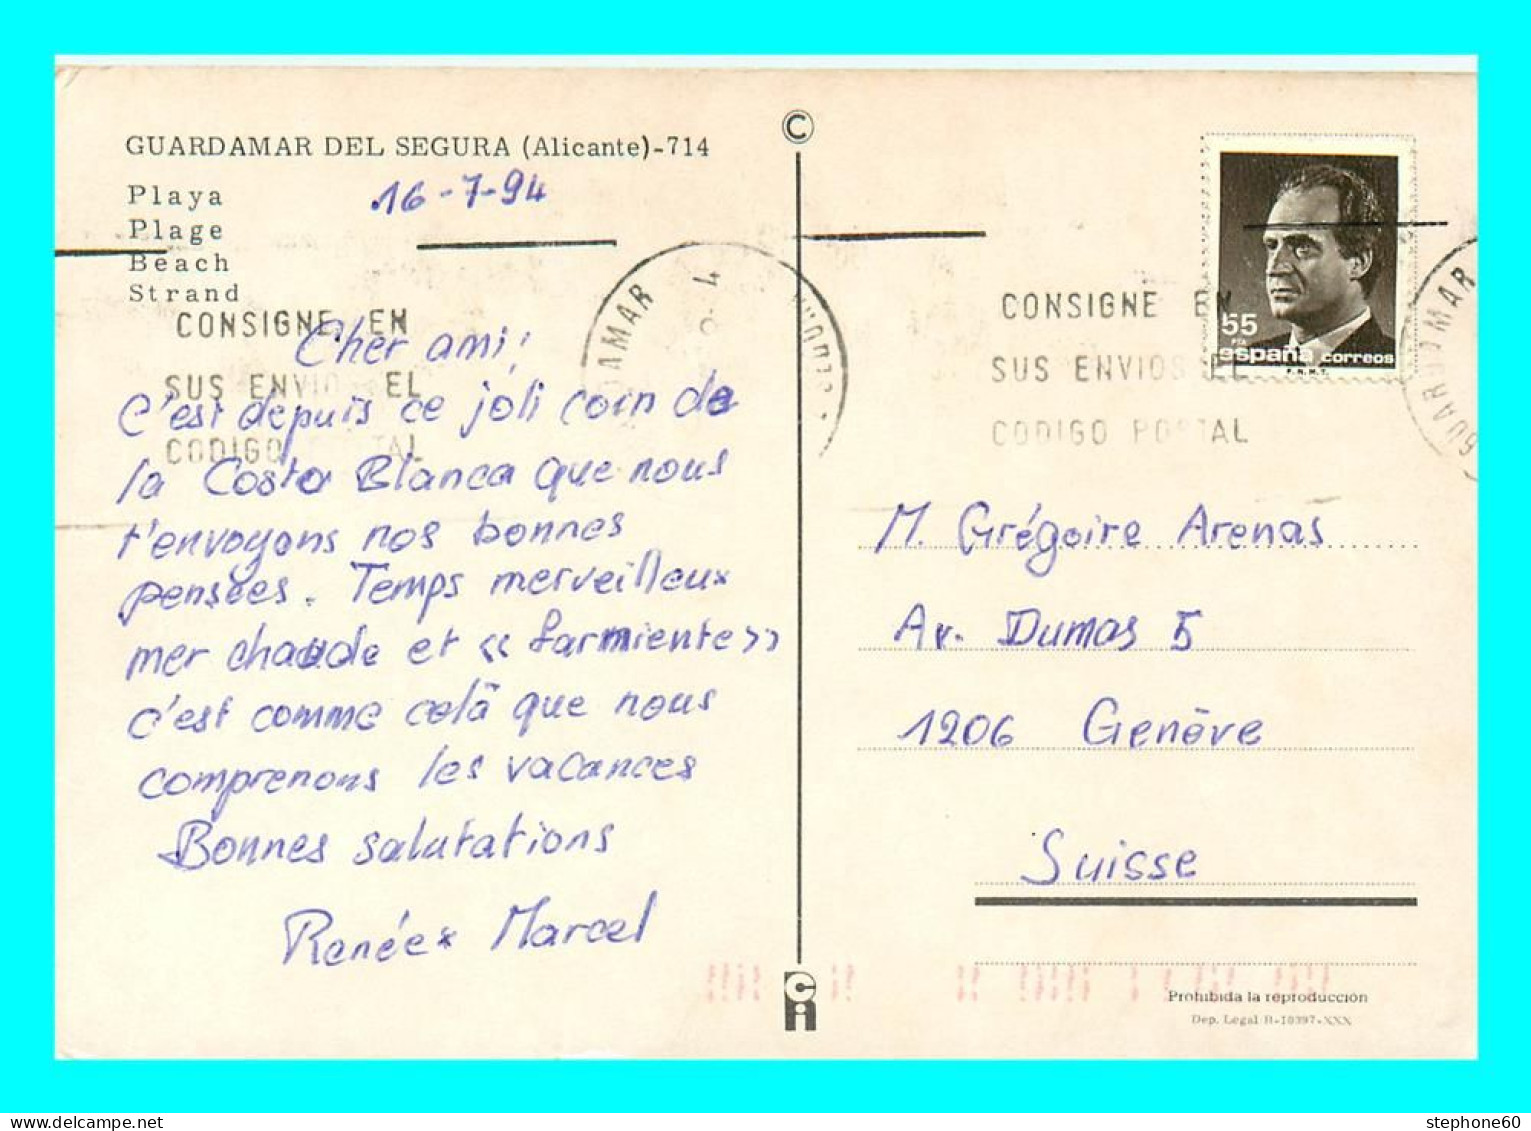 GUARDAMAR DEL SEGURA (Alicante)-714
16-7-94
Playa
Plage
Beach
Strand
CONSIGNE EN
SUS ENVIO EL
CODIGO TAL
DAMAR
Cher ami!
C'est depuis ce joli coin de
la Costa Blanca que nous
t'envoyons nos bonnes
pensées. Temps merveilleux
mer chaude et « farmiente »
c'est comme celà que nous
comprenons les vacances
Bonnes salutations
Renée x Marcel
©
Ci
55
PTA
españa correos
F.N.M.T.
CONSIGNE EN
SUS ENVIOS EL
CODIGO POSTAL
GUARDAMAR
M. Grégoire Arenas
Av. Dumas 5
1206 Genève
Suisse
Prohibida la reproducción
Dep. Legal B-10397-XXX
stephone60